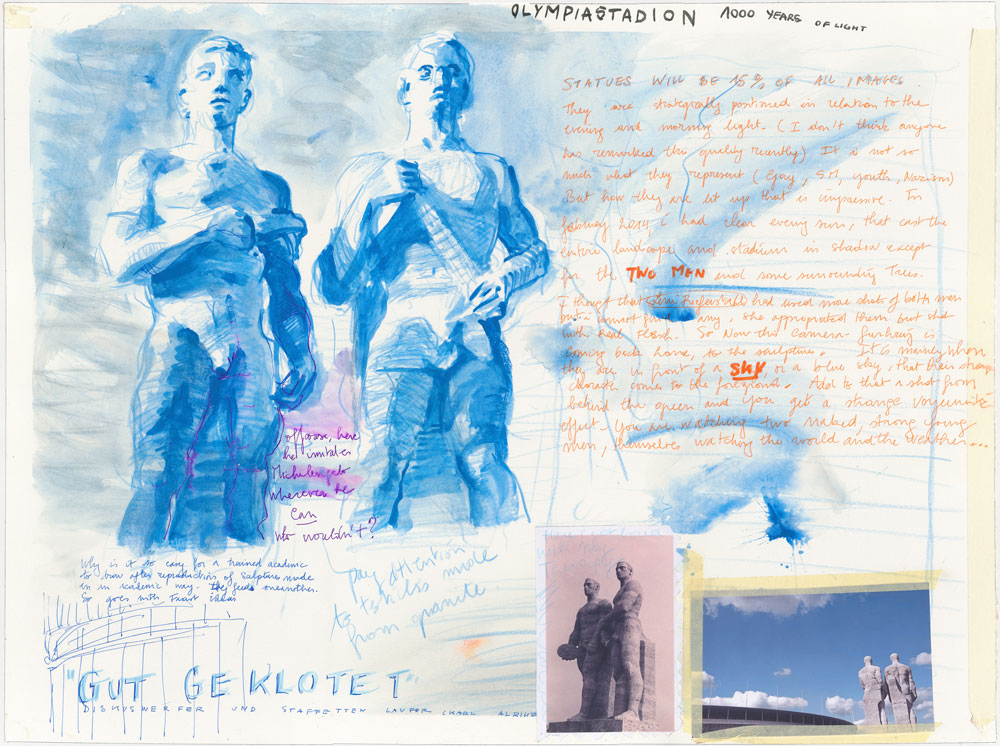 OLYMPIASTADION 1000 YEARS OF LIGHT
STATUES WILL BE 15% OF ALL IMAGES
They are strategically positioned in relation to the
evening and morning light. (I don't think anyone
has remarked this quality recently) It is not so
much what they represent (Gay, S.M, youth, Nazism)
But how they are lit up that is impressive. In
february 2014 i had clear evening sun, that cast the
entire landscape and stadium in shadow except
for the TWO MEN and some surrounding trees.
I thought that had used more shots of both men
but i cannot find any, she appropriated them but shot
with Real Flesh. So Now the camera is
coming back home, to the sculptures. It is mainly when
they are in front of a SKY or a blue sky, that their strange
character comes to the foreground. Add to that a shot from
behind the queen and you get a strange
effect. You are watching two naked, strong young
men, themselves watching the world and the weather...
of course, here
he imitates
Michelangelo
wherever he
can
who wouldn't?
Why is it so easy for a trained academic
to draw after reproductions of sculptures made
in an academic way. They feed oneanother.
So goes with ideas
pay attention
to testicles made
from granite
"GUT GEKLOTET"
DISKUSWERFER UND STAFFETTEN LAUFER (KARL ALBIKER